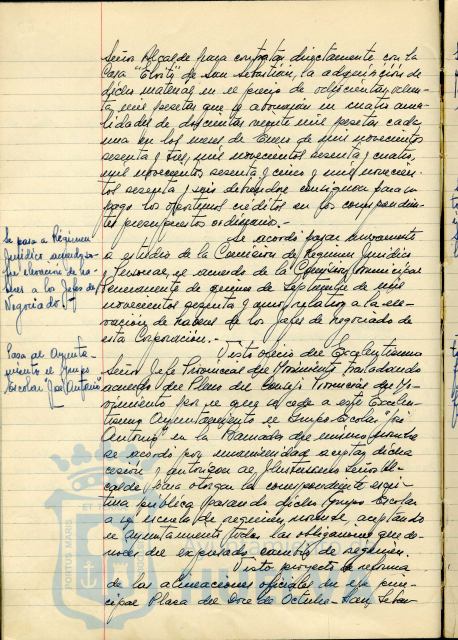 Señor Alcalde para contratar directamente con la
Casa "Eloity" de San Sebastián, la adquisición de
dicho material, en el precio de ochocientas ochen-
ta mil pesetas que se abonarán en cuatro anua-
lidades de doscientas veinte mil pesetas cada
una en los meses de Enero de mil novecientos
sesenta y tres, mil novecientos sesenta y cuatro,
mil novecientos sesenta y cinco y mil novecien-
tos sesenta y seis debiéndose consignar para su
pago los oportunos créditos en los correspondien-
tes presupuestos ordinarios.-
Se acordó pasar nuevamente
a estudio de la Comisión de Régimen Jurídico
y Personal, el acuerdo de la Comisión Municipal
Permanente de quince de Septiembre de mil
novecientos sesenta y uno, relativo a la ele-
vación de haberes de los Jefes de Negociado de
esta Corporación.-
Visto oficio del Excelentísimo
Señor Jefe Provincial del Movimiento trasladando
acuerdo del Pleno del Consejo Provincial del Mo-
vimiento por el que se cede a este Excelen-
tísimo Ayuntamiento el Grupo Escolar "José
Antonio" en la Barriada del mismo nombre
se acordó por unanimidad aceptar dicha
cesión y autorizar al Ilustrísimo Señor Al-
calde, para otorgar la correspondiente escri-
tura pública, pasando dicho Grupo Escolar
a ser escuela de régimen normal, aceptando
el Ayuntamiento todas las obligaciones que de-
rivan del expresado cambio de régimen.
Visto proyecto de reforma
de las alineaciones oficiales en esta prin-
cipal Plaza del Doce de Octubre - San Sebas-
Se pasa a Régimen
Jurídico
elevación de ha-
beres a los Jefes de
Negociado.-
Pasa al Ayunta-
miento el Grupo
Escolar "José Antonio"
PORTUS MARIS